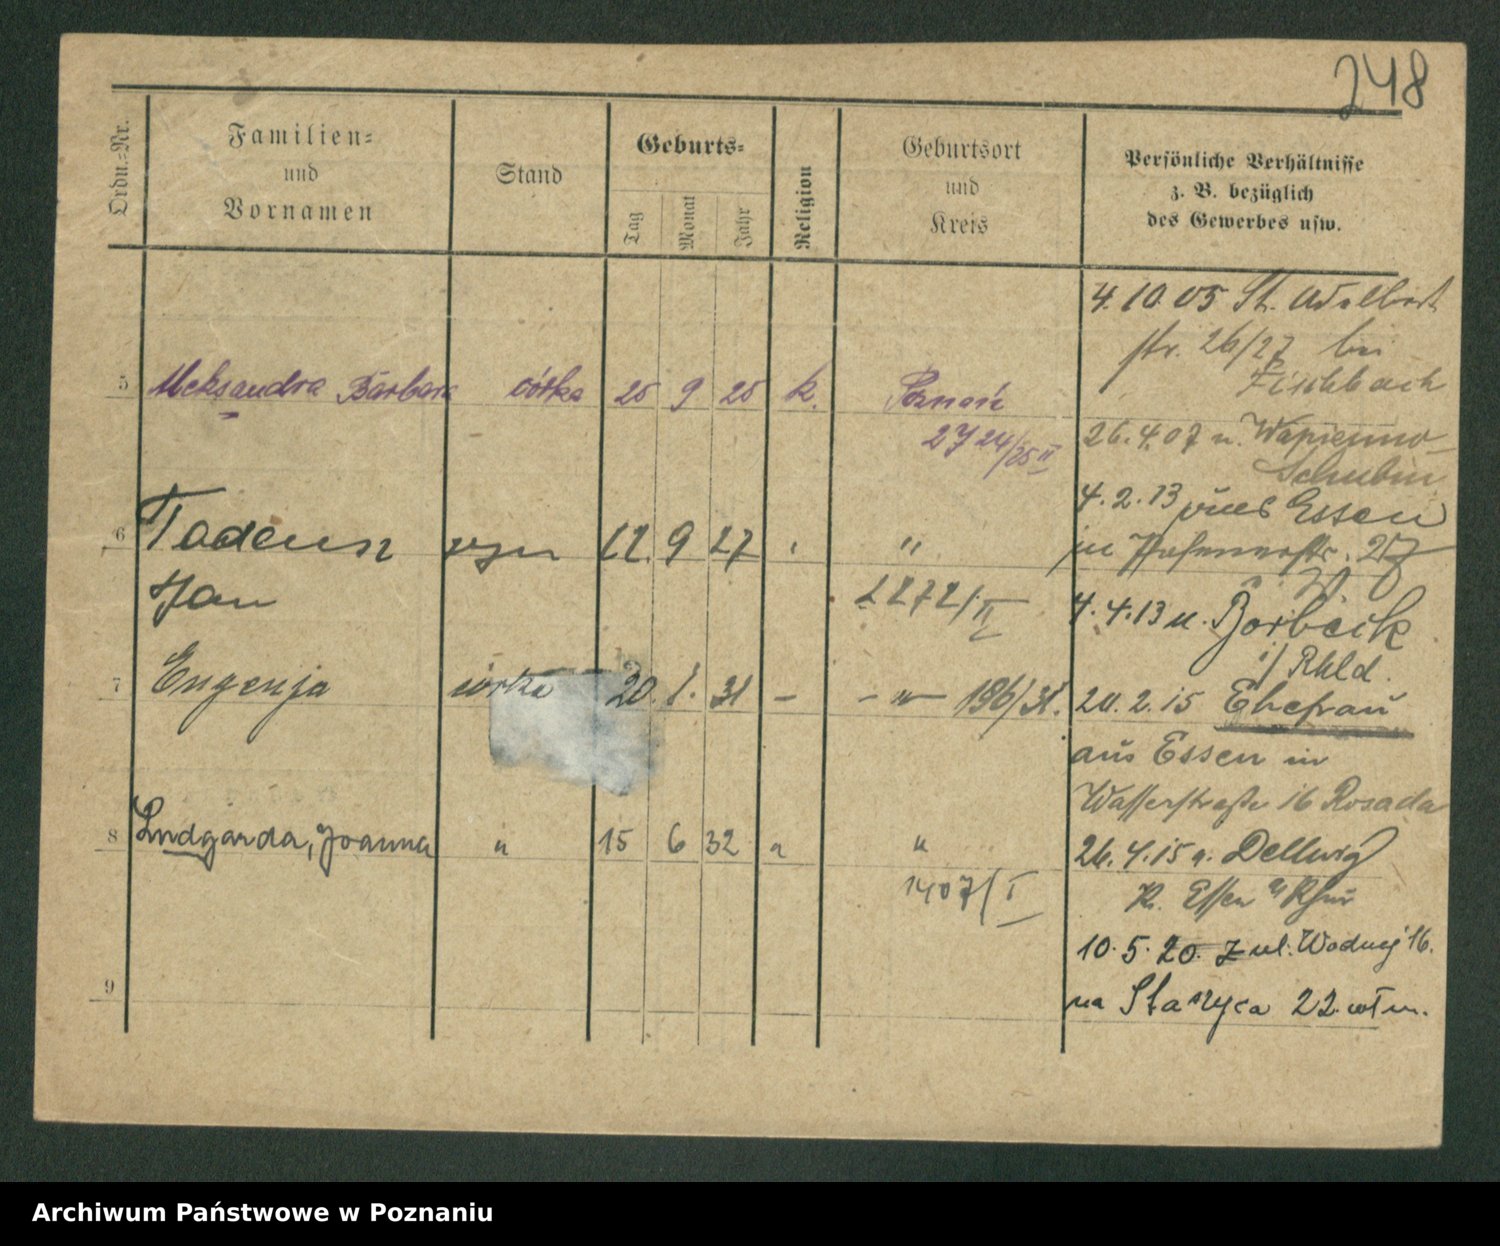 248
Ordn.-Nr.
Familien-
und
Vornamen
Stand
Geburts-
Tag
Monat
Jahr
Religion
Geburtsort
und
Kreis
Persönliche Verhältnisse
z. B. bezüglich
des Gewerbes usw.
4. 10. 05 St. Adalbert
str. 26/27 bei
Fischbach
5 Aleksandra Barbara córka 25 9 25 k. Poznań
2724/25 II
26. 4. 07 n. Wapienno
Schubin
4. 2. 13 aus Essen
6 Tadeusz syn 12. 9 27 " in Posenerstr. 27
Jan
2272/II
4. 4. 13 n. Borbeck
i/ Rhld.
7 Eugenja córka 20. 1. 31 – – " – 196/31. 20. 2. 15 Ehefrau
aus Essen in
Wasserstraße 16 Rosada
8 Ludgarda, Joanna " 15 6 32 " "
1407/I
26. 4. 15 n. Dellwig
Kr. Essen a/Ruhr
10. 5. 20. z ul. Wodnej 16.
9
na Starzyca 22.
Archiwum Państwowe w Poznaniu